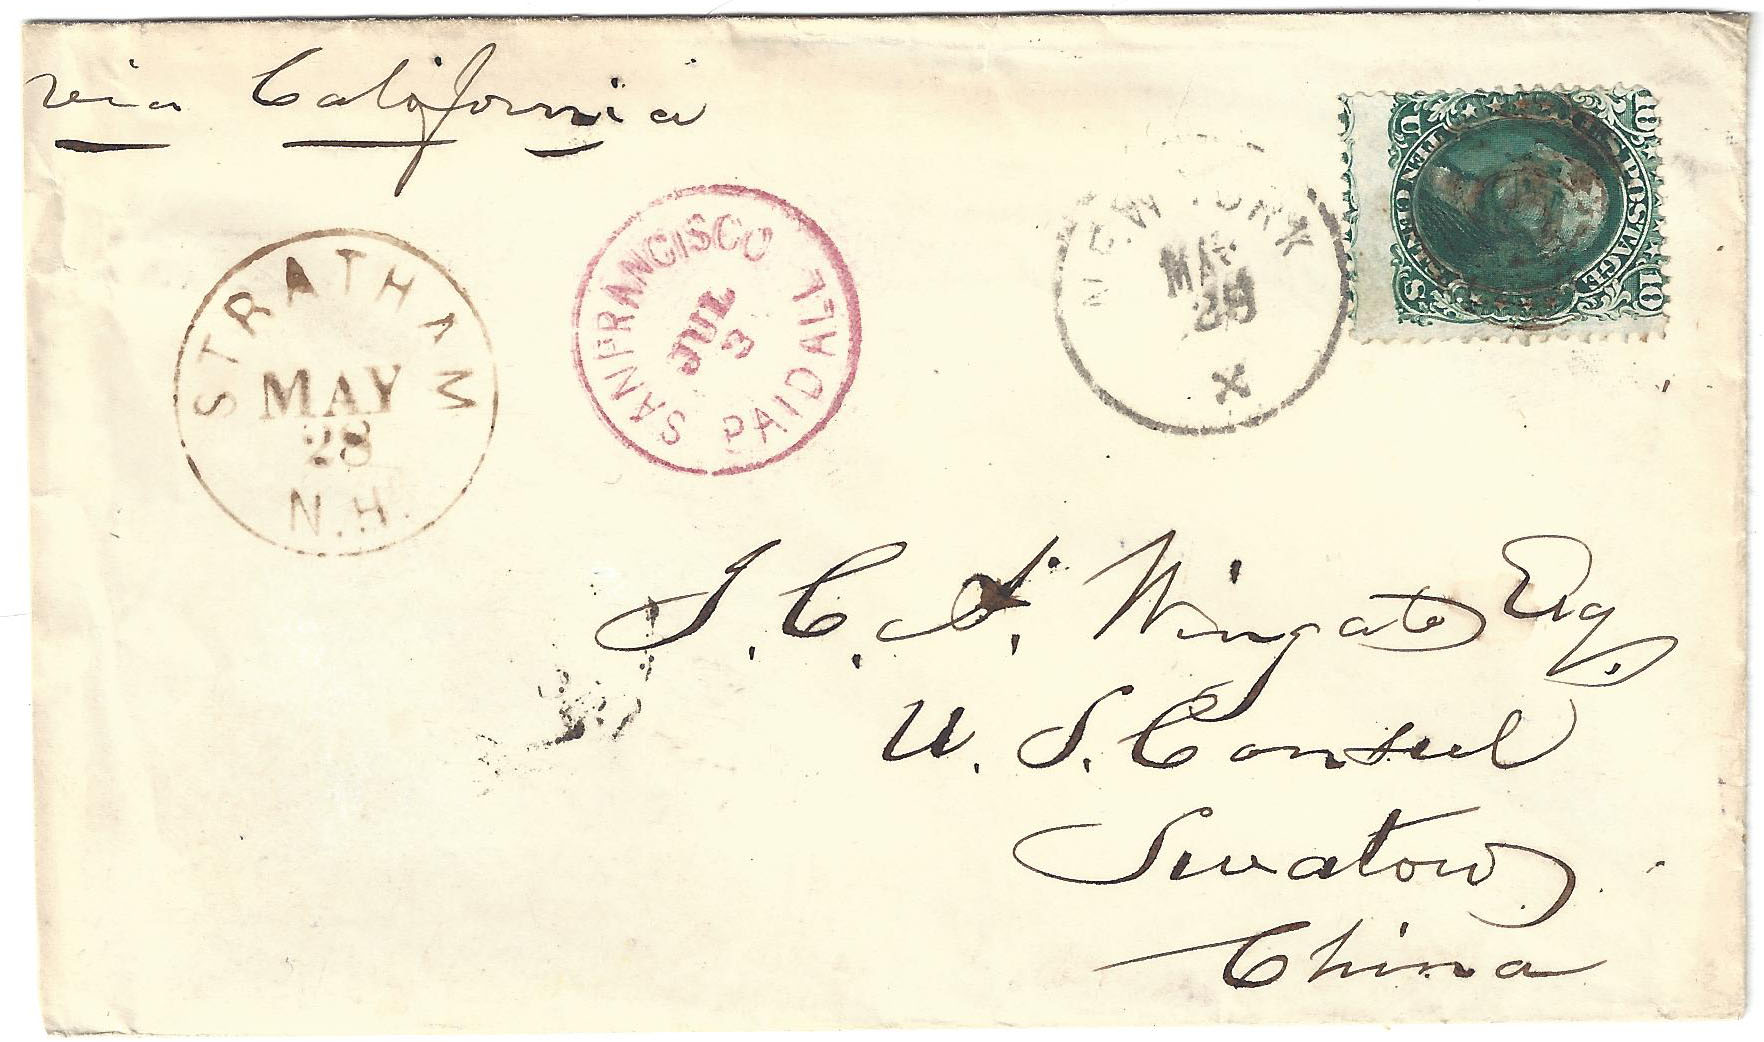 via California
STRATHAM
MAY
28
N.H.
SAN FRANCISCO
JUL
3
PAID ALL
NEW YORK
MAY
X
U.S. POSTAGE
TEN CENTS
10
10
J. C. A. Wingate Esq.
U. S. Consul
Swatow
China